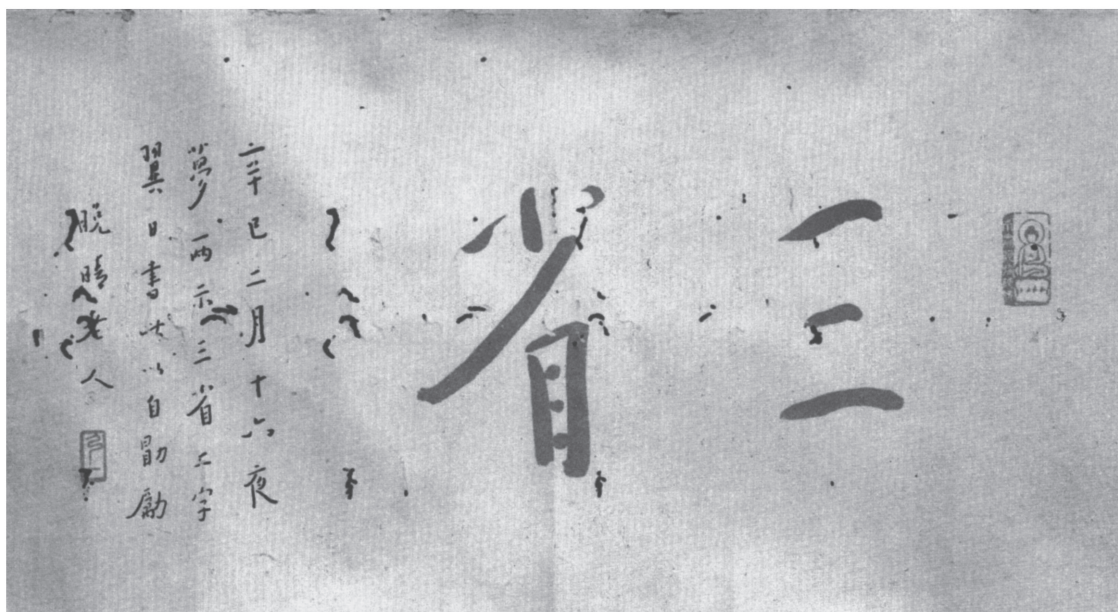 三省
辛巳二月十六夜
夢兩示三省二字
翼日書此以自勖勵
晚晴老人